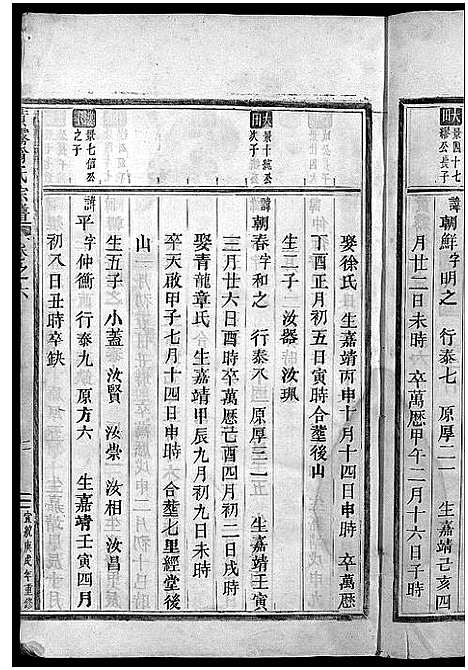 大田
景四十七
繆公長子
諱朝鮮字明之 行泰七 原厚二一 生嘉靖己亥四
月廿二日未時 卒萬曆甲午二月十六日子時
娶徐氏 生嘉靖丙申十月十四日申時 卒萬曆
丁酉正月初五日寅時合塟後山
生二子 汝器 汝珮
大田
景十 公
次子
諱朝春字和之 行泰八 原厚三二五 生嘉靖壬寅
三月廿六日酉時卒萬曆己酉四月初二日戌時
娶青龍章氏 生嘉靖甲辰九月初九日未時
卒天啟甲子七月十四日申時 合塟七里經堂後
山
生五子 小蓋 汝賢 汝崇 汝相 汝昌
景七值公
之子
諱平字仲衡 行泰九 原方六 生嘉靖壬寅四月
初八日丑時卒缺
氏宗譜 卷之六
宣統庚戌年重修